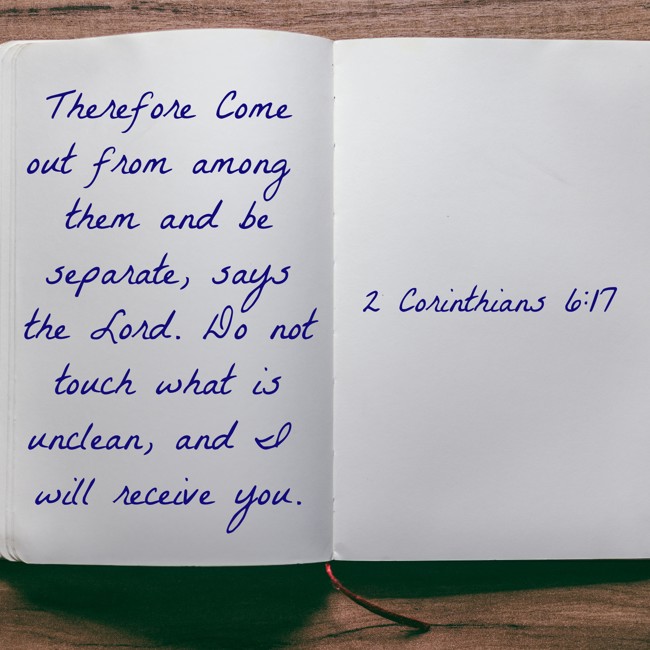 Therefore Come
out from among
them and be
separate, says
the Lord. Do not
touch what is
unclean, and I
will receive you.
2 Corinthians 6:17